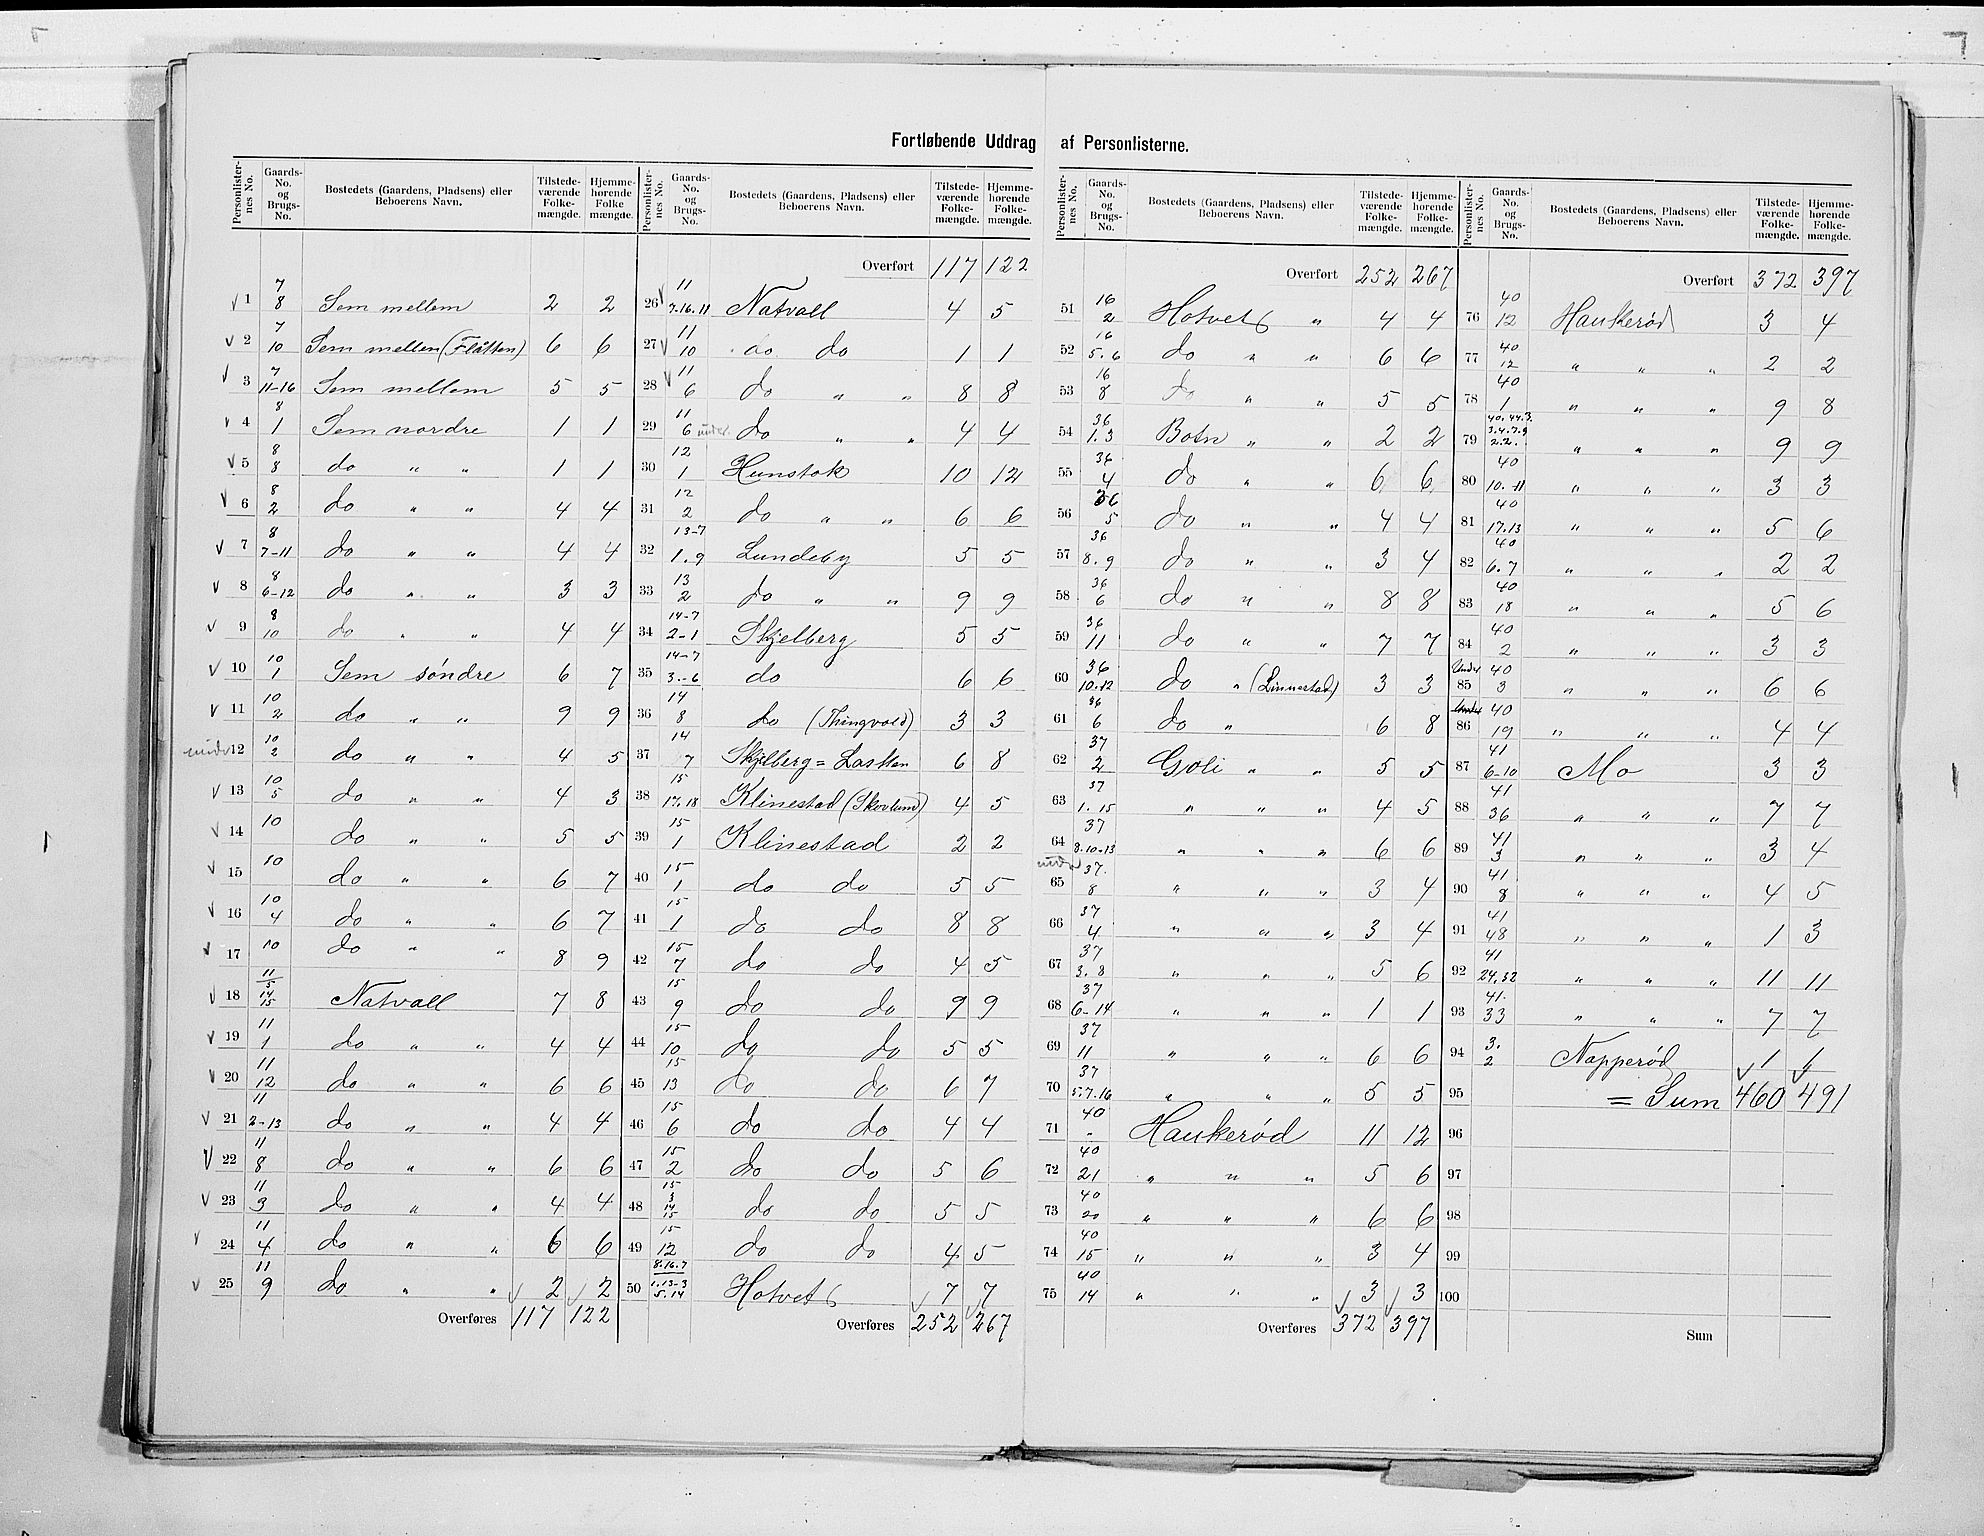 Fortløbende Uddrag af Personlisterne.
Personlisternes No. | Gaards-No. og Brugs-No. | Bostedets (Gaardens, Pladsens) eller Beboerens Navn. | Tilstedeværende Folkemængde. | Hjemmehørende Folkemængde.
1 | 7 8 | Sem mellem | 2 | 2
2 | 7 10 | Sem mellem (Flåtten) | 6 | 6
3 | 7 11-16 | Sem mellem | 5 | 5
4 | 8 1 | Sem nordre | 1 | 1
5 | 8 8 | do " " | 1 | 1
6 | 8 2 | do " " | 4 | 4
7 | 8 7-11 | do " " | 4 | 4
8 | 8 6-12 | do " " | 3 | 3
9 | 8 10 | do " " | 4 | 4
10 | 10 1 | Sem søndre | 6 | 7
11 | 10 2 | do " " | 9 | 9
under 12 | 10 2 | do " " | 4 | 5
13 | 10 5 | do " " | 4 | 3
14 | 10 | do " " | 5 | 5
15 | 10 | do " " | 6 | 7
16 | 10 4 | do " " | 6 | 7
17 | 10 | do " " | 8 | 9
18 | 11 5 14 15 | Natvall | 7 | 8
19 | 11 1 | do " " | 4 | 4
20 | 11 12 | do " " | 6 | 6
21 | 11 2-13 | do " " | 4 | 4
22 | 11 8 | do " " | 6 | 6
23 | 11 3 | do " " | 4 | 4
24 | 11 4 | do " " | 6 | 6
25 | 11 9 | do " " | 2 | 2
Overføres 117 122
Personlisternes No. | Gaards-No. og Brugs-No. | Bostedets (Gaardens, Pladsens) eller Beboerens Navn. | Tilstedeværende Folkemængde. | Hjemmehørende Folkemængde.
Overført 117 122
26 | 11 7.16.11 | Natvall | 4 | 5
27 | 11 10 | do do | 1 | 1
28 | 11 6 | do " " | 8 | 8
29 | 11 6 under. | do " " | 4 | 4
30 | 12 1 | Hunstok | 10 | 12
31 | 12 2 | do " " | 6 | 6
32 | 13-7 1.9 | Lundeby | 5 | 5
33 | 13 2 | do " " | 9 | 9
34 | 14-7 2-1 | Skjelberg | 5 | 5
35 | 14-7 3.-6 | do | 6 | 6
36 | 14 8 | do (Thingvold) | 3 | 3
37 | 14 7 | Skjelberg = Lasken | 6 | 8
38 | 15 17.18 | Klinestad (Skovlund) | 4 | 5
39 | 15 1 | Klinestad | 2 | 2
40 | 15 1 | do do | 5 | 5
41 | 15 1 | do do | 8 | 8
42 | 15 7 | do do | 4 | 5
43 | 15 9 | do do | 9 | 9
44 | 15 10 | do do | 5 | 5
45 | 15 13 | do do | 6 | 7
46 | 15 6 | do do | 4 | 4
47 | 15 2 | do do | 5 | 6
48 | 15 3 14 15 | do do | 5 | 5
49 | 15 12 | do do | 4 | 5
50 | 8.16.7 1.13-3 5.14 | Hotvet | 7 | 7
Overføres 252 267
Personlisternes No. | Gaards-No. og Brugs-No. | Bostedets (Gaardens, Pladsens) eller Beboerens Navn. | Tilstedeværende Folkemængde. | Hjemmehørende Folkemængde.
Overført 252 267
51 | 16 2 | Hotvet " | 4 | 4
52 | 16 5.6 | do " " | 6 | 6
53 | 16 8 | do " " | 5 | 5
54 | 36 1.3 | Botn " " | 2 | 2
55 | 36 4 | do " " | 6 | 6
56 | 36 5 | do " " | 4 | 4
57 | 36 8.9 | do " " | 3 | 4
58 | 36 6 | do " " | 8 | 8
59 | 36 11 | do " " | 7 | 7
60 | 36 10.12 | do " (Linnestad) | 3 | 3
61 | 36 6 | do " | 6 | 8
62 | 37 2 | Goli " " | 5 | 5
63 | 37 1.15 | " " " | 4 | 5
64 | 37 8.10.13 | " " " | 6 | 6
under 65 | 37. 8 | " " " | 3 | 4
66 | 37 4 | " " " | 3 | 4
67 | 37 3.8 | " " " | 5 | 6
68 | 37 6-14 | " " " | 1 | 1
69 | 37 11 | " " " | 6 | 6
70 | 37 5.7.16 | " " " | 5 | 5
71 | 40 - | Haukerød | 11 | 12
72 | 40 21 | " " " | 5 | 6
73 | 40 20 | " " " | 6 | 6
74 | 40 15 | " " " | 3 | 4
75 | 40 14 | " " " | 3 | 3
Overføres 372 397
Personlisternes No. | Gaards-No. og Brugs-No. | Bostedets (Gaardens, Pladsens) eller Beboerens Navn. | Tilstedeværende Folkemængde. | Hjemmehørende Folkemængde.
Overført 372 397
76 | 40 12 | Haukerød | 3 | 4
77 | 40 12 | " " " | 2 | 2
78 | 40 1 | " " " | 9 | 8
79 | 40.44.3. 3.4.7.9 2.2. | " " " | 9 | 9
80 | 40 10.-11 | " " " | 3 | 3
81 | 40 17.13 | " " " | 5 | 6
82 | 40 6.7 | " " " | 2 | 2
83 | 40 18 | " " " | 5 | 6
84 | 40 2 | " " " | 3 | 3
Under 85 | 40 3 | " " " | 6 | 6
Under 86 | 40 19 | " " " | 4 | 4
87 | 41 6-10 | Mo | 3 | 3
88 | 41 36 | " " " | 7 | 7
89 | 41 3 | " " " | 3 | 4
90 | 41 8 | " " " | 4 | 5
91 | 41 48 | " " " | 1 | 3
92 | 41 24.32 | " " " | 11 | 11
93 | 41. 33 | " " " | 7 | 7
94 | 3. 2 | Napperød | 1 | 1
95 | = Sum | 460 | 491
96
97
98
99
100
Sum